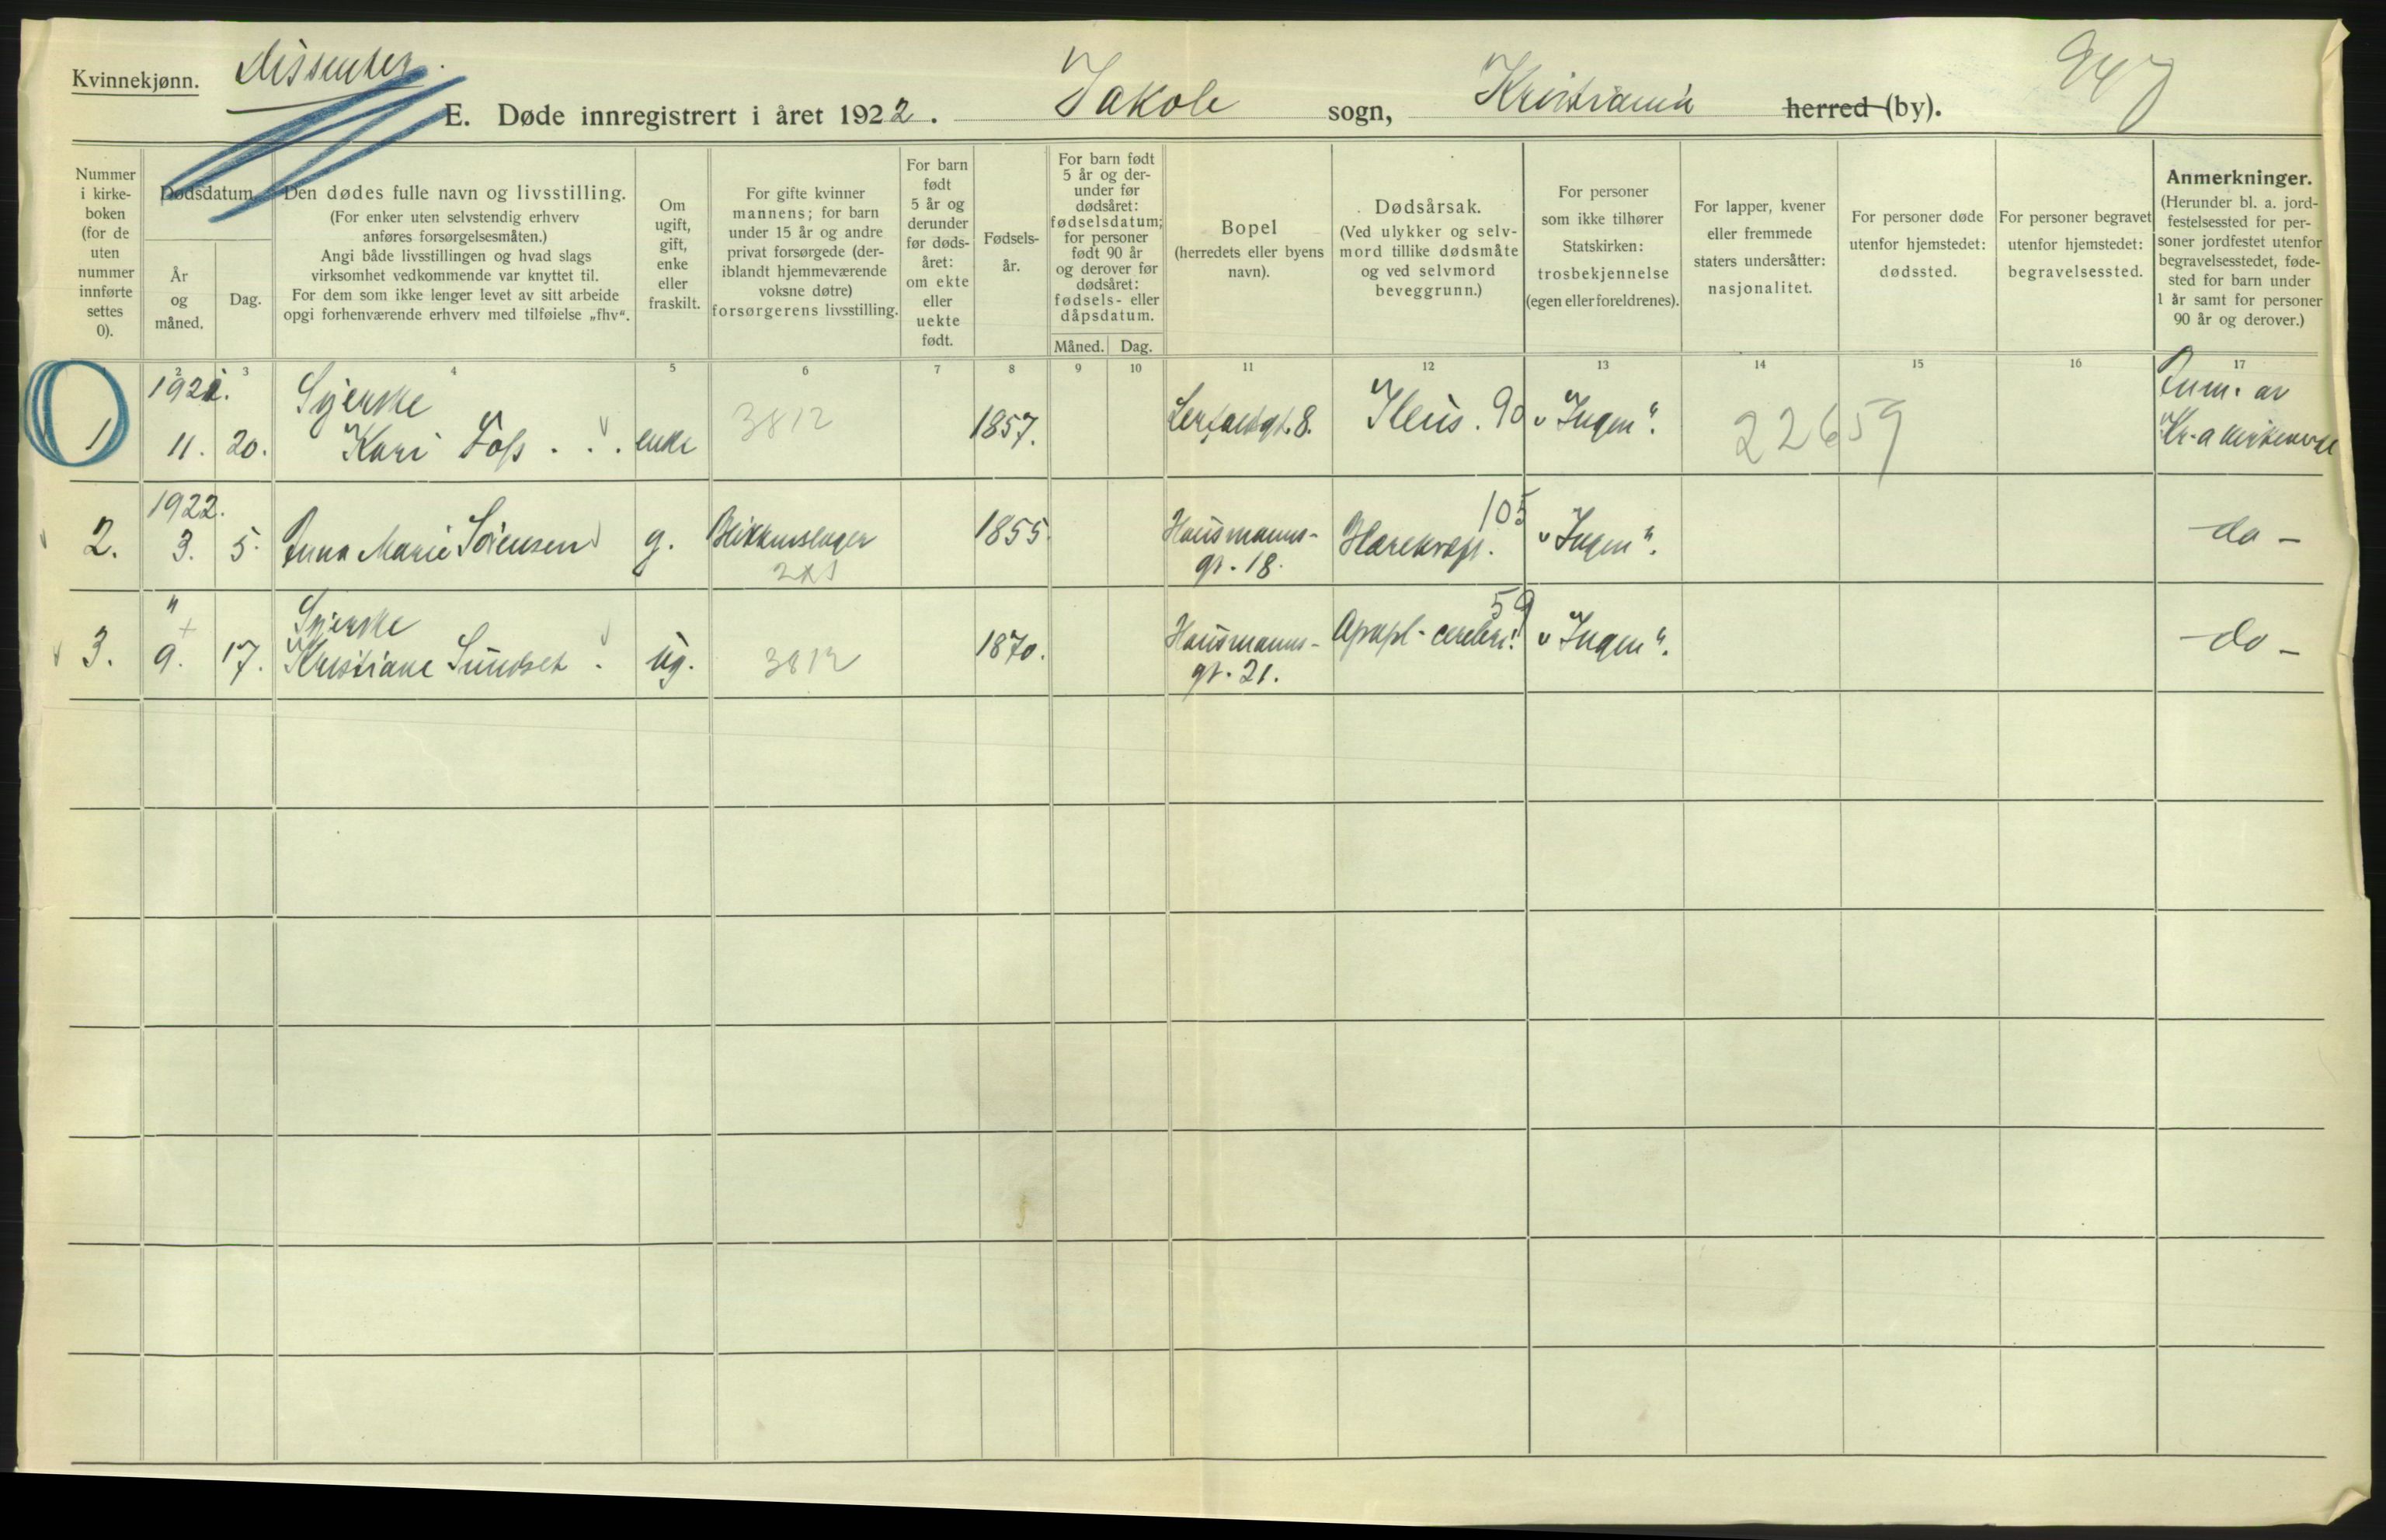 Kvinnekjønn. Dissenter.
947
E. Døde innregistrert i året 1922. Jakob sogn, Kristiania herred (by).
Nummer i kirke-boken (for de uten nummer innførte settes 0).
Dødsdatum.
År og måned.
Dag.
Den dødes fulle navn og livsstilling.
(For enker uten selvstendig erhverv
anføres forsørgelsesmåten.)
Angi både livsstillingen og hvad slags
virksomhet vedkommende var knyttet til.
For dem som ikke lenger levet av sitt arbeide
opgi forhenværende erhverv med tilføielse „fhv“.
Om
ugift,
gift,
enke
eller
fraskilt.
For gifte kvinner
mannens; for barn
under 15 år og andre
privat forsørgede (der-
iblandt hjemmeværende
voksne døtre)
forsørgerens livsstilling.
For barn
født
5 år og
derunder
før døds-
året:
om ekte
eller
uekte
født.
Fødsels-
år.
For barn født
5 år og der-
under før
dødsåret:
fødselsdatum;
for personer
født 90 år
og derover før
dødsåret:
fødsels- eller
dåpsdatum.
Måned. Dag.
Bopel
(herredets eller byens
navn).
Dødsårsak.
(Ved ulykker og selv-
mord tillike dødsmåte
og ved selvmord
beveggrunn.)
For personer
som ikke tilhører
Statskirken:
trosbekjennelse
(egen eller foreldrenes).
For lapper, kvener
eller fremmede
staters undersåtter:
nasjonalitet.
For personer døde
utenfor hjemstedet:
dødssted.
For personer begravet
utenfor hjemstedet:
begravelsessted.
Anmerkninger.
(Herunder bl. a. jord-
festelsessted for per-
soner jordfestet utenfor
begravelsesstedet, føde-
sted for barn under
1 år samt for personer
90 år og derover.)
2 3 4 5 6 7 8 9 10 11 12 13 14 15 16 17
1921. Syerske Anm. av
1 11. 20. Kari Foss enke 3812 1857. gt. 8. Ileus. 90 "Ingen". 22659 Kr.a
1922. 105
2. 3. 5. Anna Marie Sörensen g. Blikkenslager 1855 Hausmanns- "Ingen". - do -
gt. 18.
" Syerske 59
3. 9. 17. Kristiane Sundset ug. 3812 1870. Hausmanns- Apopl. cerebri. "Ingen". - do -
gt. 21.